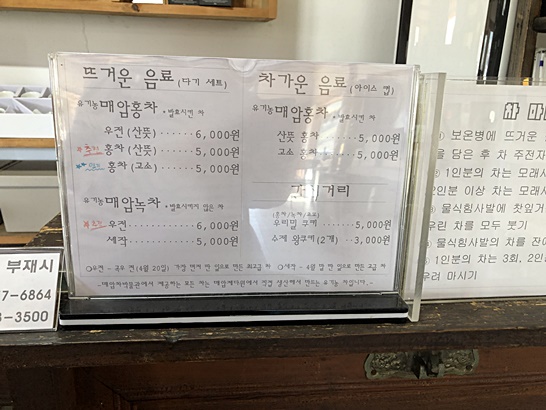 뜨거운 음료 (다기 세트)
유기농 매암홍차 * 발효시킨 차
우전 (산뜻) ······ 6,000원
홍차 (산뜻) ······ 5,000원
홍차 (고소) ······ 5,000원
유기농 매암녹차 * 발효시키지 않은 차
우전 ············ 6,000원
세작 ············ 5,000원
차가운 음료 (아이스 컵)
유기농 매암홍차 * 발효시킨 차
산뜻 홍차 ······ 5,000원
고소 홍차 ······ 5,000원
우리밀 쿠키 ······ 5,000원
수제 왕쿠키(2개) ·· 3,000원
○우전 - 곡우 전(4월 20일) 가장 먼저 딴 잎으로 만든 최고급 차
○세작 - 4월 말 딴 잎으로 만든 고급 차
-매암차박물관에서 제공하는 모든 차는 매암제다원에서 직접 생산해서 만드는 유기농 차입니다.-
부재시
7-6864
3-3500
차 마
보온병에 뜨거운
을 담은 후 차 주전자
1인분의 차는 모래시
2인분 이상 차는 모래시
물식힘사발에 찻잎거
우린 차를 모두 붓기
물식힘사발의 차를 잔에
1인분의 차는 3회, 2인
우려 마시기